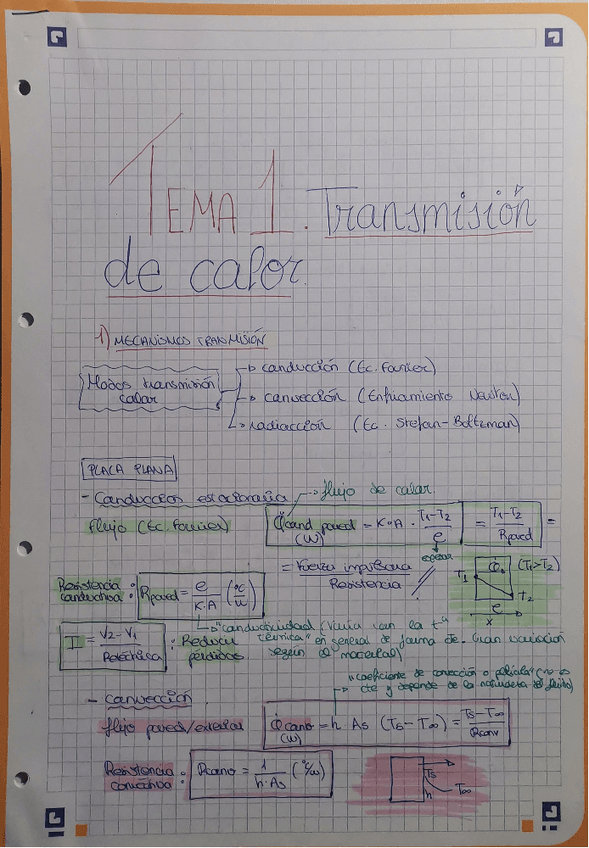 TEMA 1. Transmisión
de calor.
1) MECANISMOS TRANSMISIÓN
Modos transmisión calor
→ conducción (Ec. Fourier)
→ convección (Enfriamiento Newton)
→ radiacción (Ec. Stefan-Boltzman)
PLACA PLANA
- Conducción estacionaria
→ flujo de calor.
flujo (Ec. Fourier)
Q̇cond pared = K·A · (T1-T2)/e = (T1-T2)/Rpared =
(W)
espesor
= Fuerza impulsora / Resistencia
(T1>T2)
T1 Q̇ T2
e
x
Resistencia conductiva: Rpared = e/(K·A) (ºC/W)
→ "conductividad térmica" (Varía con la tª
en general de forma de. Gran variación
según el material)
I = (V2-V1)/Reléctrica : Reducir pérdidas
- convección
"coeficiente de convección o película" (no es
cte y depende de la naturaleza del fluido)
flujo pared/exterior
Q̇conv = h As (Ts-T∞) = (Ts-T∞)/Rconv
(W)
Resistencia convectiva: Rconv = 1/(h·As) (ºC/W)
Ts
h T∞